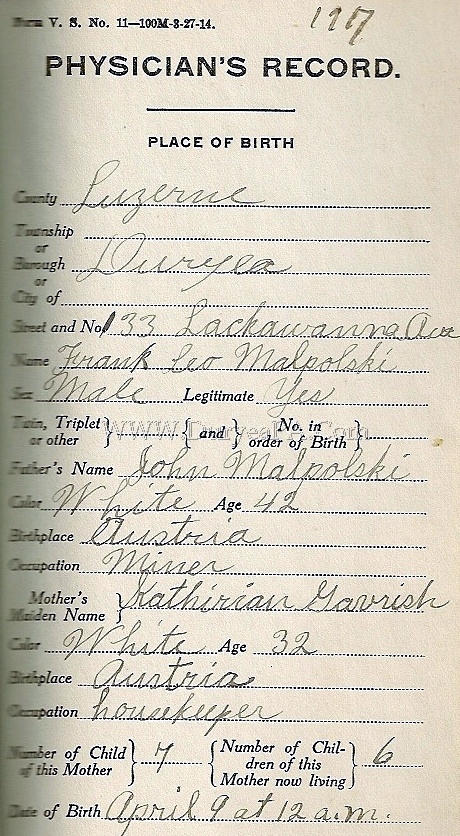 Form V. S. No. 11—100M-3-27-14.
117
PHYSICIAN'S RECORD.
PLACE OF BIRTH
County Luzerne
Township
or
Borough Duryea
or
City of
Street and No. 133 Lackawanna Ave
Name Frank Leo Malpolski
Sex Male Legitimate Yes
Twin, Triplet or other } { and } No. in order of Birth }
Father's Name John Malpolski
Color White Age 42
Birthplace Austria
Occupation Miner
Mother's Maiden Name } Kathirian Gavrish
Color White Age 32
Birthplace Austria
Occupation housekeeper
Number of Child of this Mother } 7 { Number of Children of this Mother now living } 6
Date of Birth April 9 at 12 a.m.